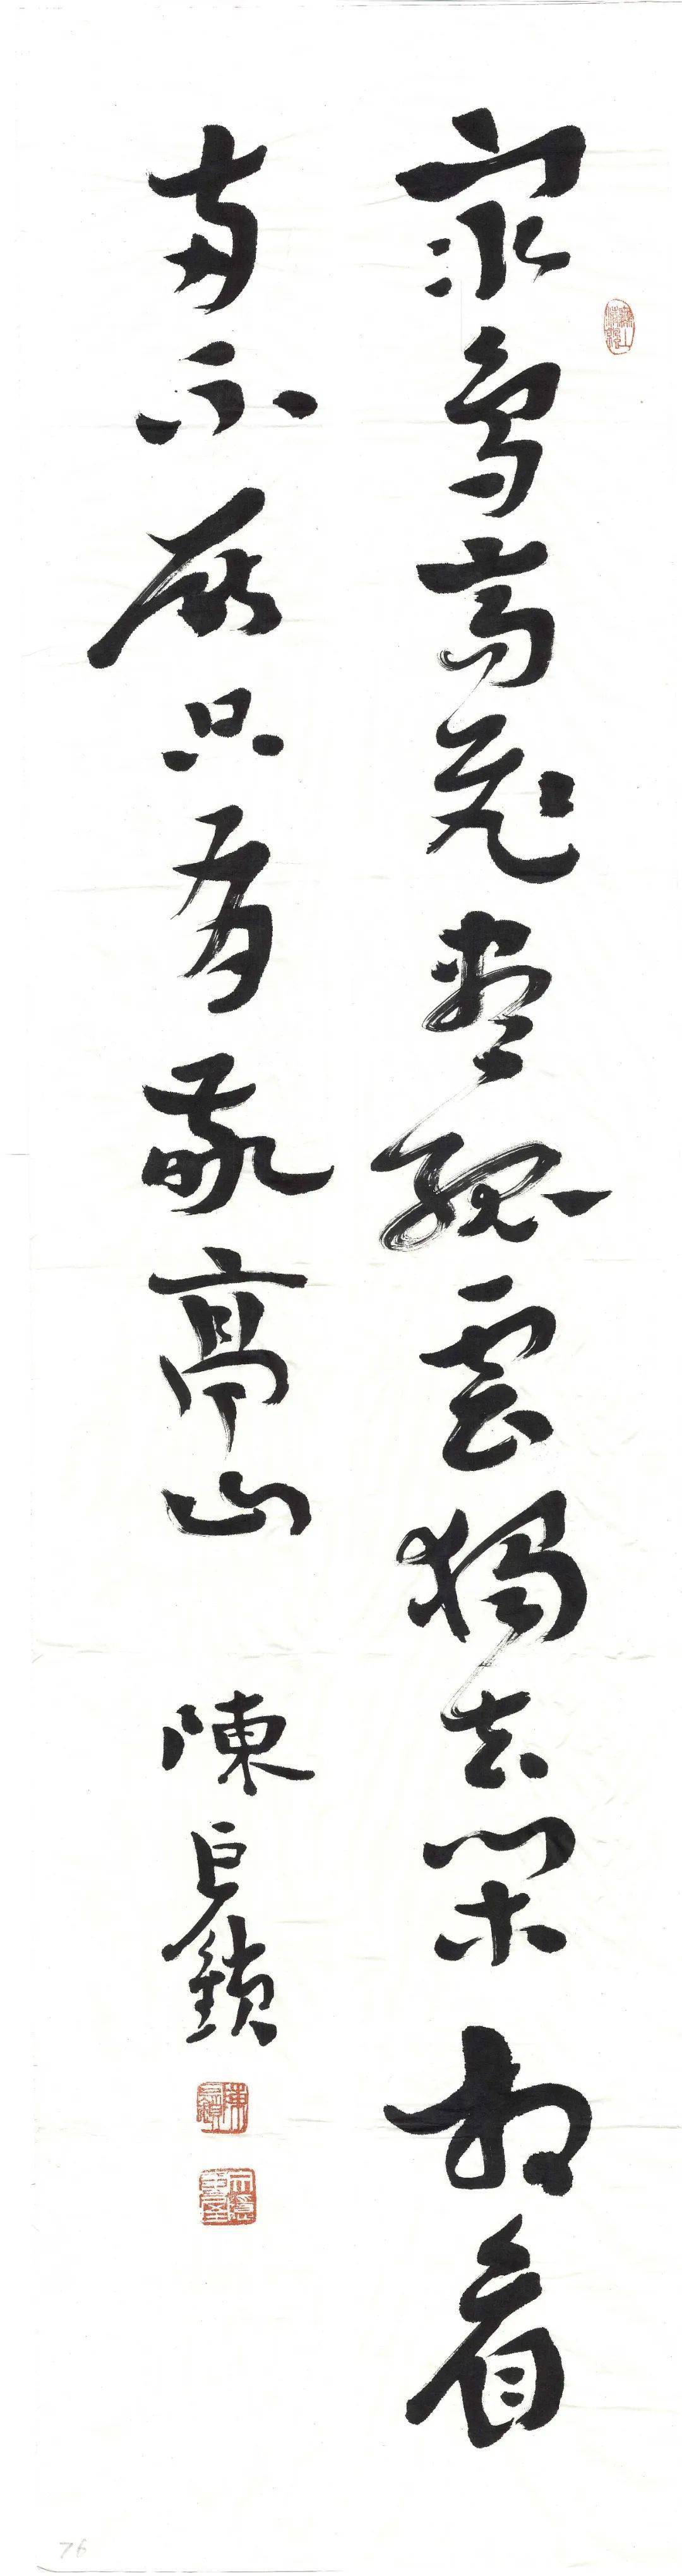 眾鳥高飛盡孤雲獨去閑相看
兩不厭只有敬亭山 陳巨鎖
76